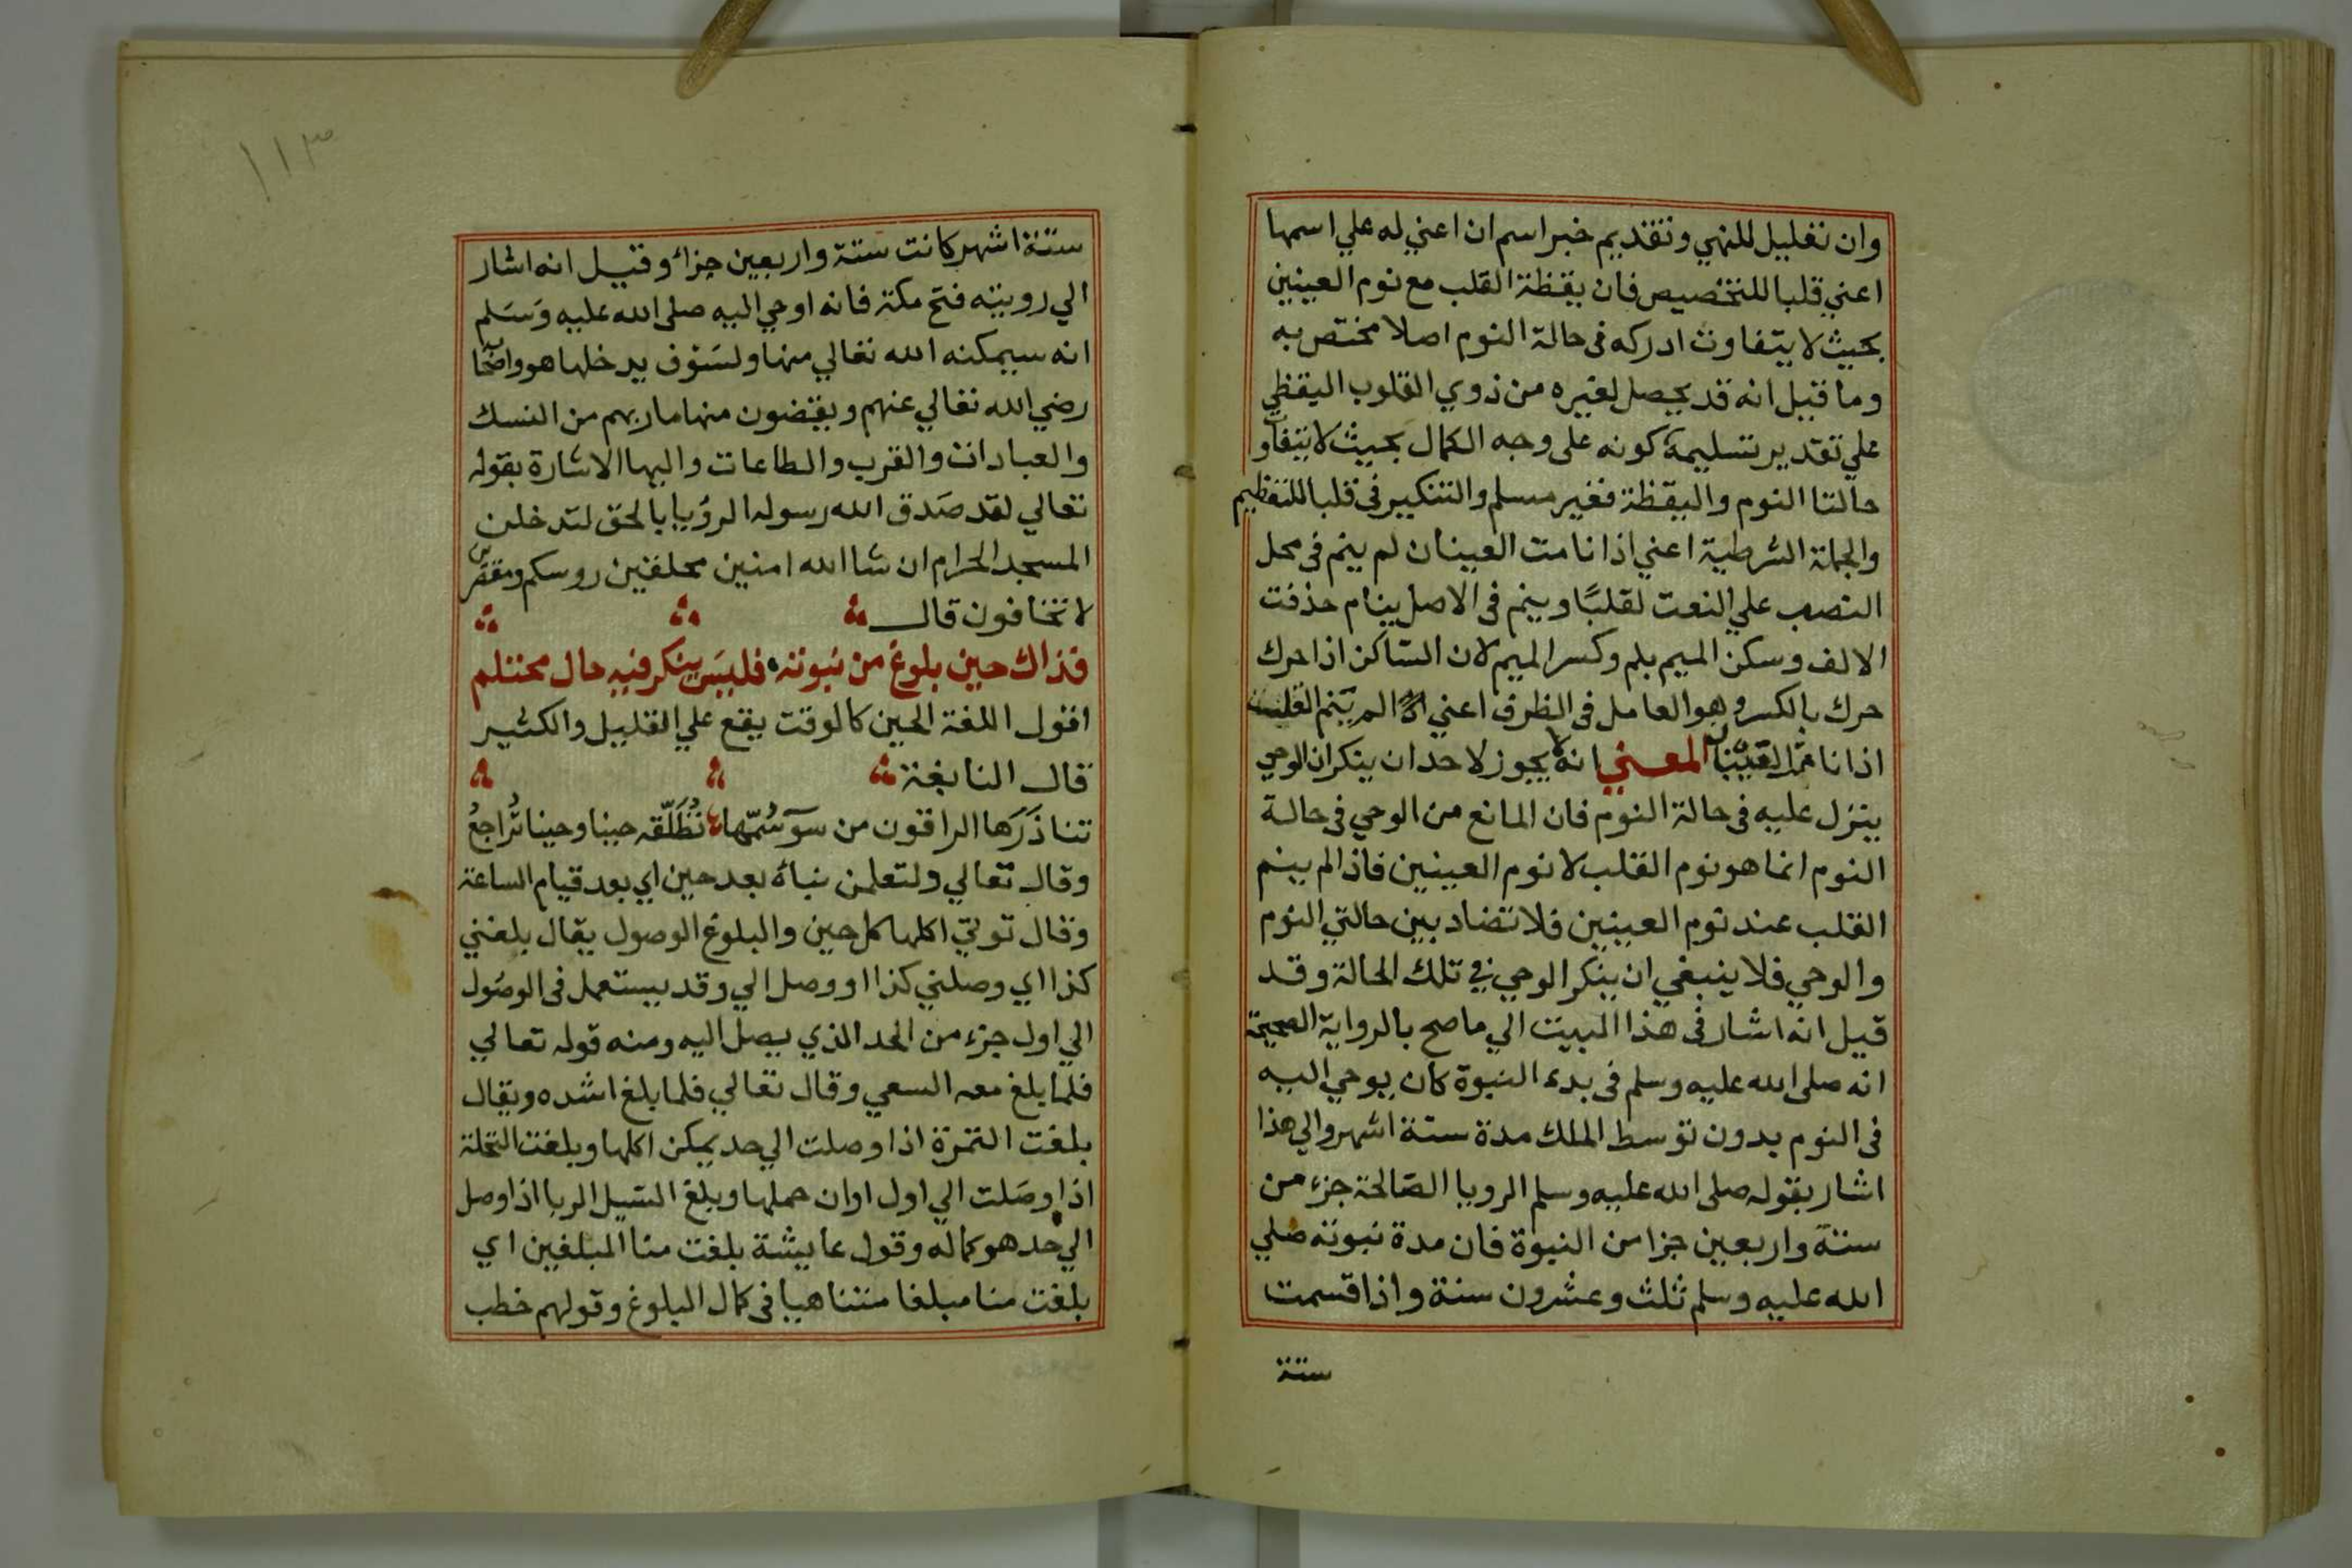 وان تعليل للنهي وتقديم خبر اسم ان اعني له علي اسمها
اعني قلبا للتخصيص فان يقظة القلب مع نوم العينين
بحيث لا يتفاوت ادركه فى حالة النوم اصلا مختص به
وما قيل انه قد يحصل لغيره من ذوي القلوب اليقظي
علي تقدير تسليمه كونه على وجه الكمال بحيث لا يتفاوت
حالتا النوم واليقظة فغير مسلم والتنكير فى قلبا للتعظيم
والجملة الشرطية اعني اذا نامت العينان لم ينم فى محل
النصب علي النعت لقلبًا وينم فى الاصل ينام حذفت
الالف وسكن الميم بلم وكسر الميم لان الساكن اذا حرك
حرك بالكسر وهو العامل فى الظرف اعني اذا لم ينم القلب
اذا نامت العينان المعني انه لا يجوز لاحد ان ينكر ان الوحي
ينزل عليه فى حالة النوم فان المانع من الوحي فى حالة
النوم انما هو نوم القلب لا نوم العينين فاذا لم ينم
القلب عند نوم العينين فلا تضاد بين حالتي النوم
والوحي فلا ينبغي ان ينكر الوحي في تلك الحالة وقد
قيل انه اشار فى هذا البيت الي ما صح بالرواية الصحيحة
انه صلى الله عليه وسلم فى بدء النبوة كان يوحي اليه
فى النوم بدون توسط الملك مدة ستة اشهر والي هذا
اشار بقوله صلى الله عليه وسلم الرويا الصالحة جزء من
ستة واربعين جزا من النبوة فان مدة نبوته صلي
الله عليه وسلم ثلث وعشرون سنة واذا قسمت
ستة
١١٣
ستة اشهر كانت ستة واربعين جزاء وقيل انه اشار
الي رويته فتح مكة فانه اوحي اليه صلى الله عليه وَسَلم
انه سيمكنه الله تعالي منها ولسَوْف يدخلها هو واصحابه
رضي الله تعالي عنهم ويقضون منها ماربهم من النسك
والعبادات والقرب والطاعات واليها الاشارة بقوله
تعالي لقد صَدق الله رسوله الرؤيا بالحق لتدخلن
المسجد الحرام ان شا الله امنين محلقين روسكم ومقصرين
لا تخافون قال
فذاك حين بلوغ من نبوته فليسَ ينكر فيه حال محتلم
اقول اللغة الحين كالوقت يقع علي القليل والكثير
قال النابغة
تناذَرَها الراقون من سوٓ سُمّها تُطَلّقه حينا وحينا تُراجعُ
وقال تعالي ولتعلمن نباه بعد حين اي بعد قيام الساعة
وقال توتي اكلها كل حين والبلوغ الوصول يقال بلغني
كذا اي وصلني كذا او وصل الي وقد يستعمل فى الوصُول
الي اول جزء من الحد الذي يصل اليه ومنه قوله تعالي
فلما بلغ معه السعي وقال تعالي فلما بلغ اشده ويقال
بلغت الثمرة اذا وصلت الي حد يمكن اكلها وبلغت النخلة
اذا وصَلت الي اول اوان حملها وبلغ السَيل الربا اذا وصل
الي حد هو كماله وقول عايشة بلغت منا المبلغين اي
بلغت منا مبلغا متناهيا فى كمال البلوغ وقولهم خطب